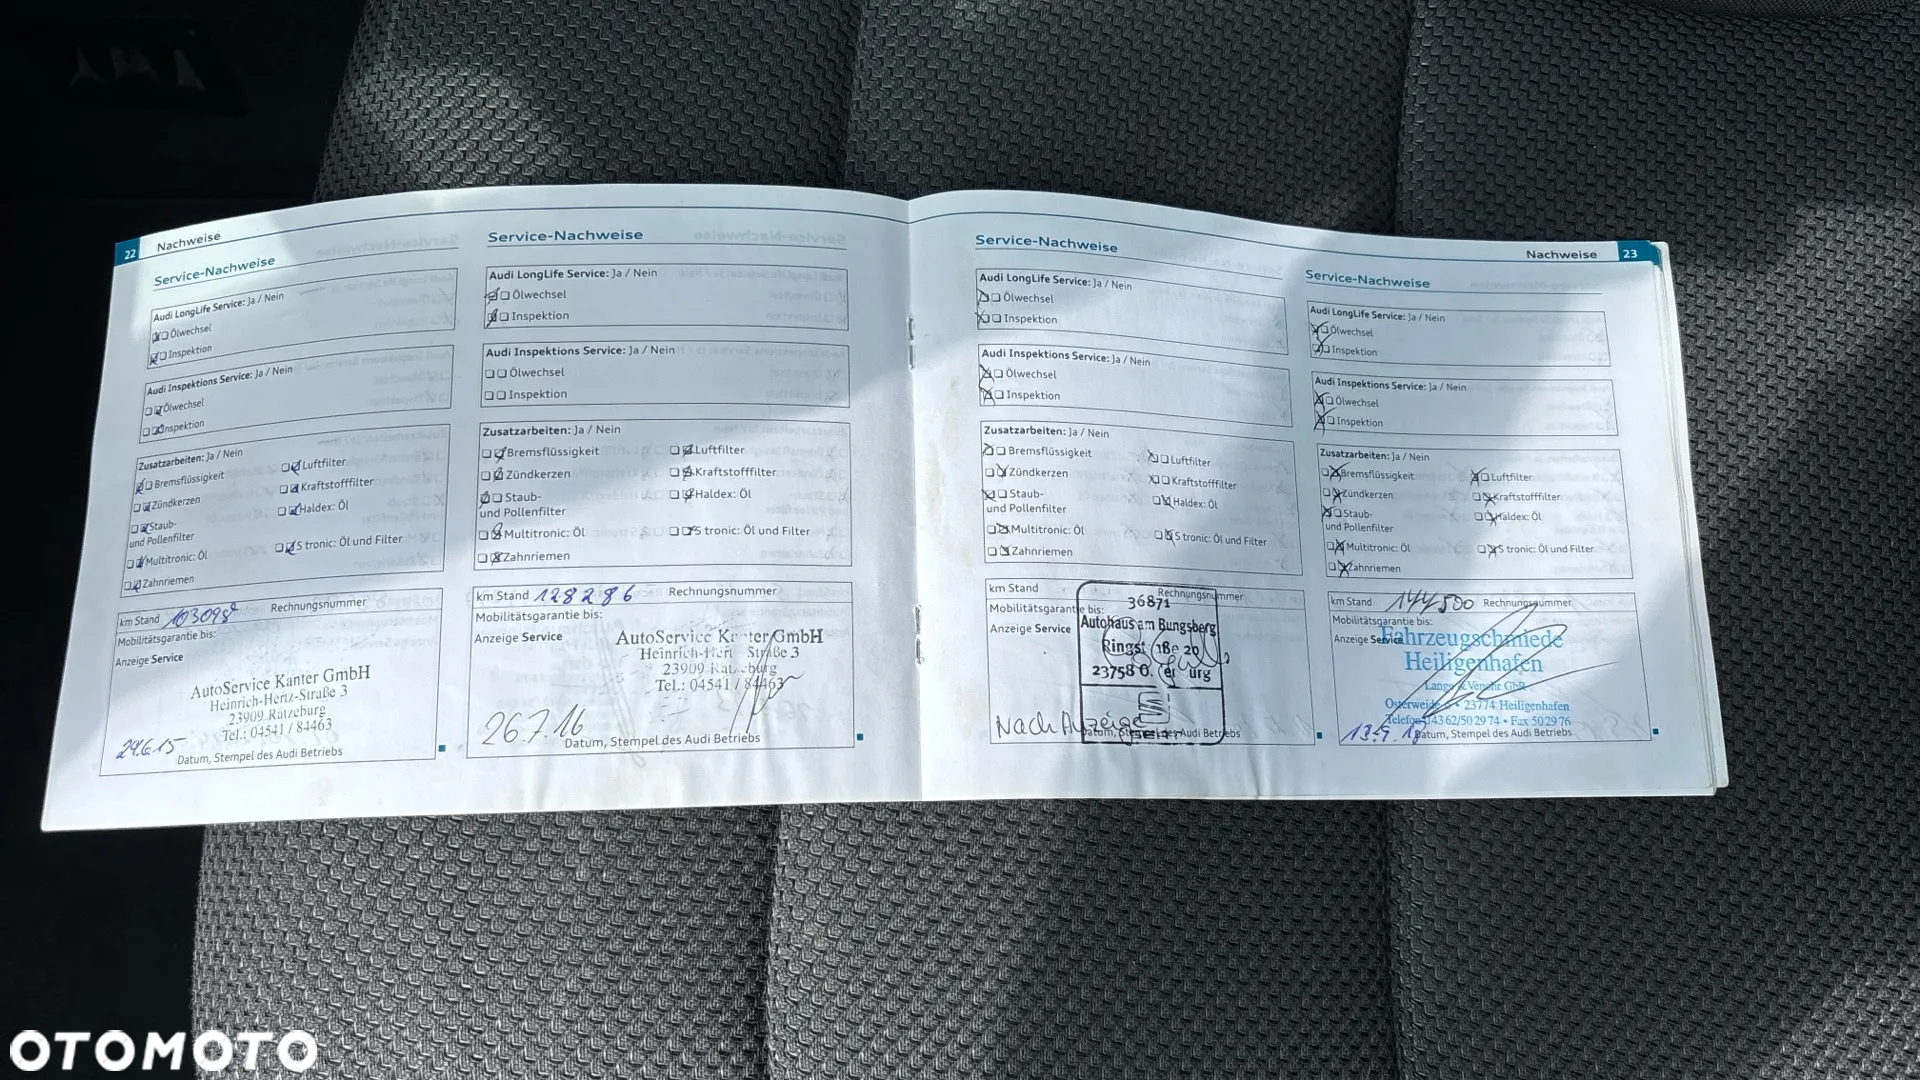 22 Nachweise
Service-Nachweise
Audi LongLife Service: Ja / Nein
Ölwechsel
Inspektion
Audi Inspektions Service: Ja / Nein
Ölwechsel
Inspektion
Zusatzarbeiten: Ja / Nein
Bremsflüssigkeit
Zündkerzen
Staub-
und Pollenfilter
Multitronic: Öl
Zahnriemen
Luftfilter
Kraftstofffilter
Haldex: Öl
S tronic: Öl und Filter
km Stand 103098 Rechnungsnummer
Mobilitätsgarantie bis:
Anzeige Service
AutoService Kanter GmbH
Heinrich-Hertz-Straße 3
23909 Ratzeburg
Tel.: 04541 / 84463
29.6.15
Datum, Stempel des Audi Betriebs
Service-Nachweise
Audi LongLife Service: Ja / Nein
Ölwechsel
Inspektion
Audi Inspektions Service: Ja / Nein
Ölwechsel
Inspektion
Zusatzarbeiten: Ja / Nein
Bremsflüssigkeit
Zündkerzen
Staub-
und Pollenfilter
Multitronic: Öl
Zahnriemen
Luftfilter
Kraftstofffilter
Haldex: Öl
S tronic: Öl und Filter
km Stand 128286 Rechnungsnummer
Mobilitätsgarantie bis:
Anzeige Service
AutoService Kanter GmbH
Heinrich-Hertz-Straße 3
23909 Ratzeburg
Tel.: 04541 / 84463
26.7.16
Datum, Stempel des Audi Betriebs
Service-Nachweise
Audi LongLife Service: Ja / Nein
Ölwechsel
Inspektion
Audi Inspektions Service: Ja / Nein
Ölwechsel
Inspektion
Zusatzarbeiten: Ja / Nein
Bremsflüssigkeit
Zündkerzen
Staub-
und Pollenfilter
Multitronic: Öl
Zahnriemen
Luftfilter
Kraftstofffilter
Haldex: Öl
S tronic: Öl und Filter
km Stand Rechnungsnummer
Mobilitätsgarantie bis:
Anzeige Service
36871
Autohaus am Bungsberg
20
23758
Nach Anzeige
Datum, Stempel des Audi Betriebs
Nachweise 23
Service-Nachweise
Audi LongLife Service: Ja / Nein
Ölwechsel
Inspektion
Audi Inspektions Service: Ja / Nein
Ölwechsel
Inspektion
Zusatzarbeiten: Ja / Nein
Bremsflüssigkeit
Zündkerzen
Staub-
und Pollenfilter
Multitronic: Öl
Zahnriemen
Luftfilter
Kraftstofffilter
Haldex: Öl
S tronic: Öl und Filter
km Stand 144500 Rechnungsnummer
Mobilitätsgarantie bis:
Anzeige Service
Fahrzeugschmiede
Heiligenhafen
GbR
23774 Heiligenhafen
Telefon 04362/502974 • Fax 502976
Datum, Stempel des Audi Betriebs
OTOMOTO